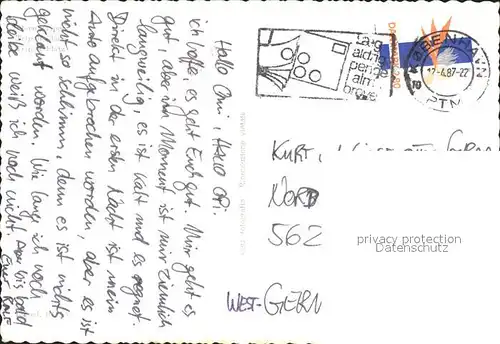 Hallo Omi, Hallo Opi.
ich hoffe es geht Euch gut. Mir geht es
gut, aber im Moment ist mir ziemlich
langweilig, es ist kalt und es regnet.
Direkt in der ersten Nacht ist mein
Auto aufgebrochen worden, aber es ist
nicht so schlimm, denn es ist nichts
geklaut worden. Wie lange ich noch
bleibe weiß ich noch nicht. Also bis bald
Euer Ralf
tag
aldrig
penge
alm.
breve
DANMARK 2.80
KØBENHAVN
17-4.87-22
PTN
KURT
NORD
562
WEST-GERN
privacy protection
Danutasites